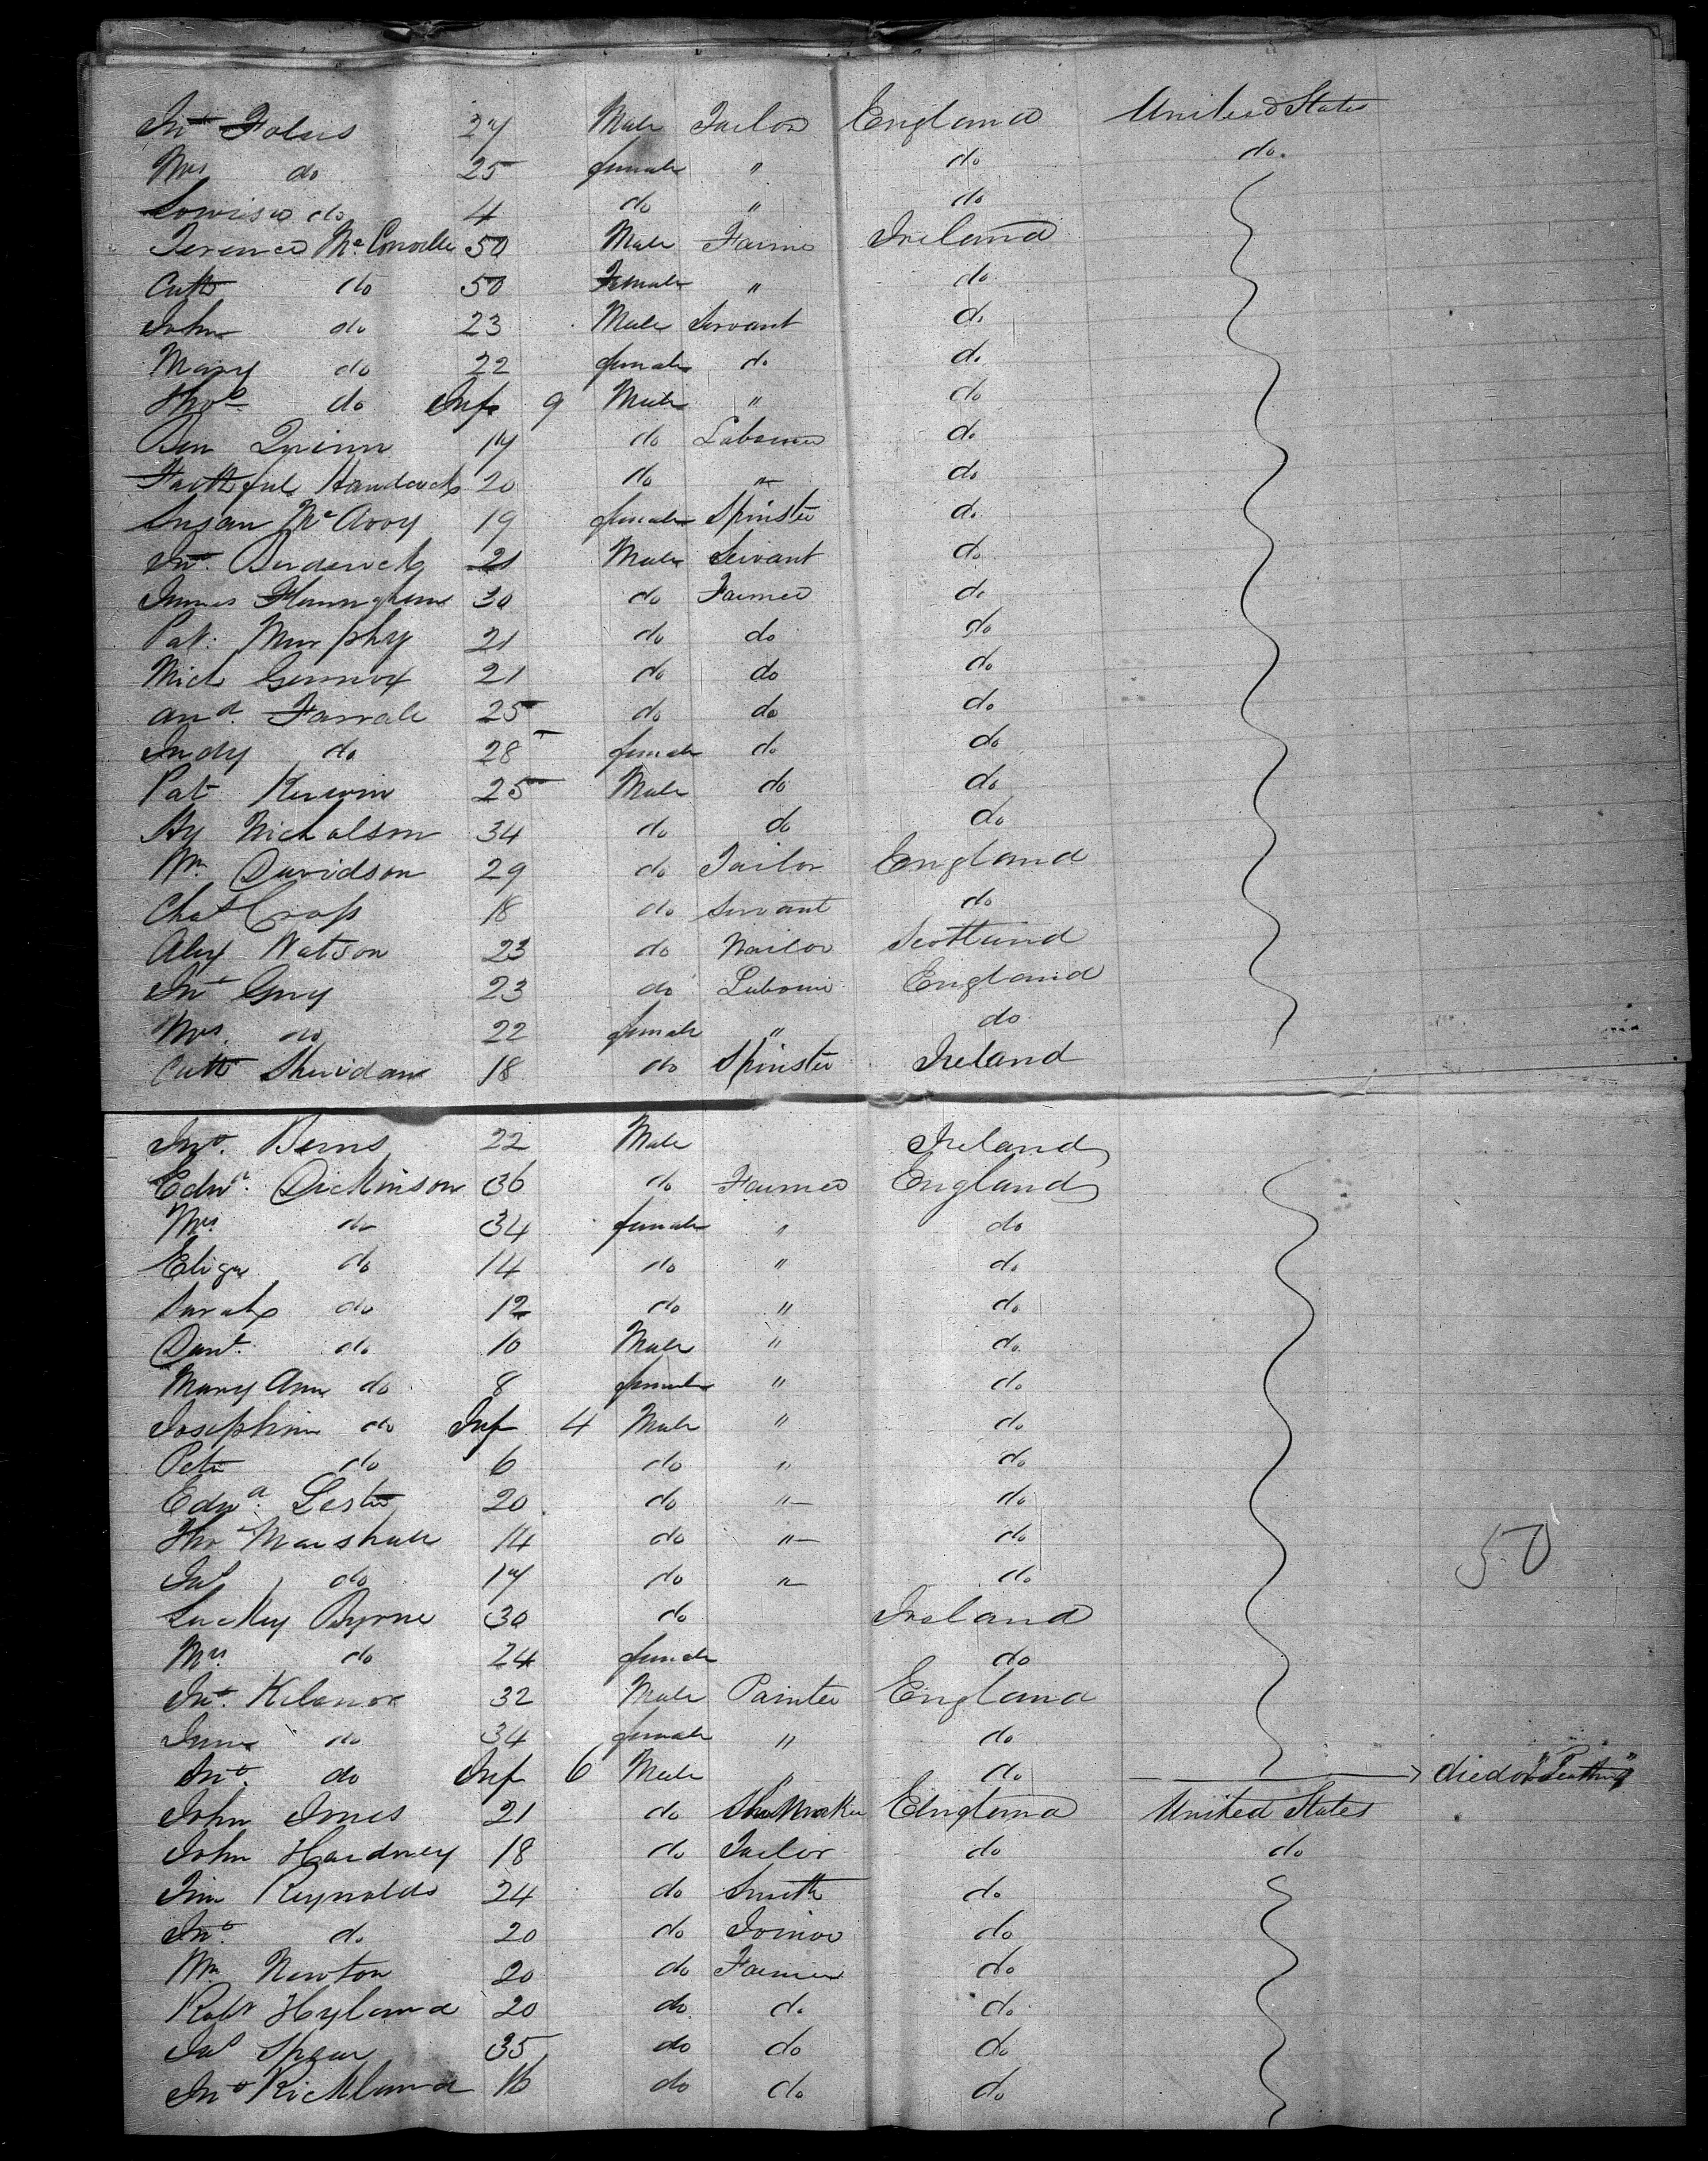 Jno Foles 27 Male Tailor England United States
Mrs do 25 female " do do.
Lowisa do 4 do " do
Terence McConville 50 Male Farmer Ireland
Cath do 50 Female " do
John do 23 Male Servant do
Mary do 22 female do do
Thos do Inf 9 Male " do
Ben Quinn 17 do Labourer do
Faithful 20 do " do
Susan McAvoy 19 female Spinster do
Jno. Broderick 21 Male Servant do
James 30 do Farmer do
Pat. Murphy 21 do do do
Mich 21 do do do
And. Farrale 25 do do do
Judy do 28 female do do
Pat Kerwin 25 Male do do
Hy Nicholson 34 do do do
Wm Davidson 29 do Tailor England
Chas Cross 18 do Servant do
Alex Watson 23 do Nailor Scotland
Jno Guy 23 do Labourer England
Mrs. do 22 female " do
Cath Sheridan 18 do Spinster Ireland
Jno. Berns 22 Male Ireland
Edwd. Dickinson 36 do Farmer England
Mrs do 34 female " do
Eliza do 14 do " do
Sarah do 12 do " do
Danl. do 10 Male " do
Mary Ann do 8 female " do
Josephine do Inf 4 Male " do
Peter do 6 do " do
Edwd. Lester 20 do " do
Thos Marshall 14 do " do
Jas do 17 do " do 50
Luckey Byrne 30 do Ireland
Mrs. do 24 female do
Jno. 32 Male Painter England
do 34 female " do
Jno. do Inf 6 Male " do died of "Teething"
John Jones 21 do Shoemaker England United States
John Hardney 18 do Tailor do do
Jim Reynolds 24 do Smith do
Jno. do 20 do Joiner do
Wm Newton 20 do Farmer do
Robt Hyland 20 do do do
Jas Spear 35 do do do
Jno Rickland 16 do do do